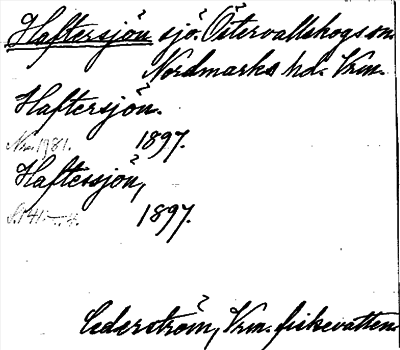 Haftersjön sjö. Östervallskogs sn.
Nordmarks hd. Vrm.
Haftersjön.
Nr. 1981. 1897.
Haftessjön,
S. 141 1897.
Cederström, Vrm. fiskevatten.